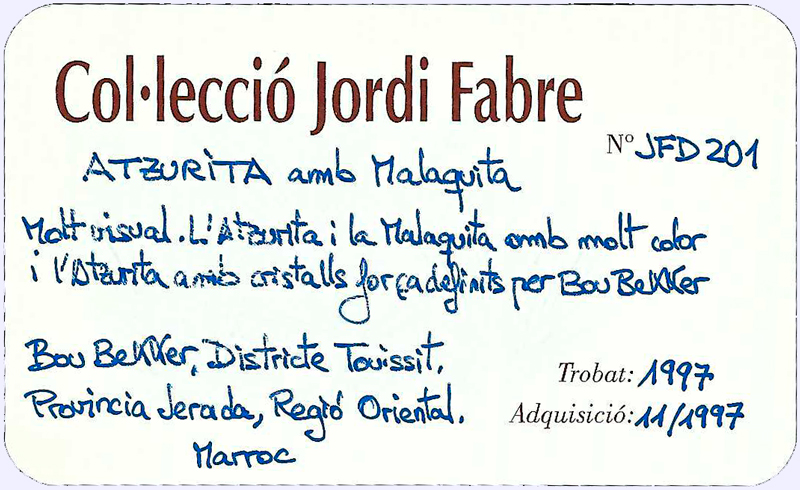 Col·lecció Jordi Fabre
Nº JFD201
ATZURITA amb Malaquita
Molt visual. L'Atzurita i la Malaquita amb molt color
i l'Atzurita amb cristalls força definits per Bou Bekker
Bou Bekker, Districte Touissit,
Província Jerada, Regió Oriental.
Marroc
Trobat: 1997
Adquisició: 11/1997